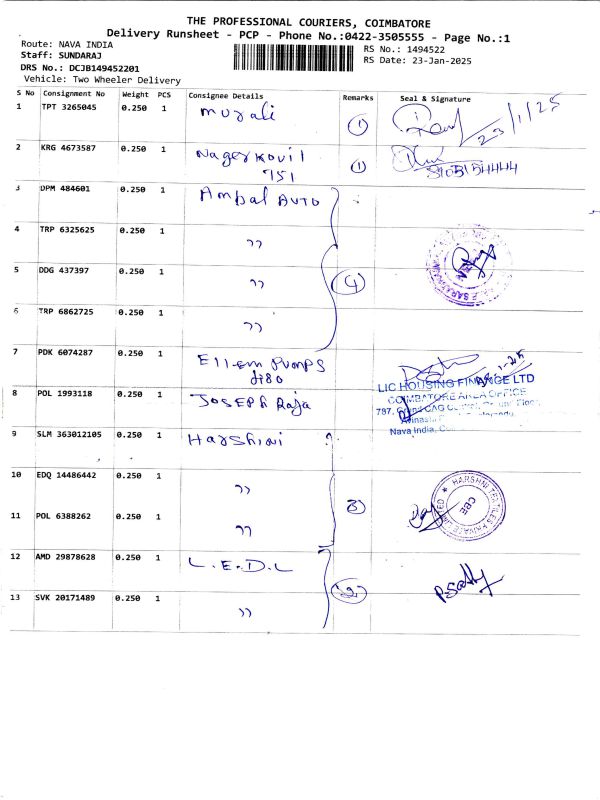 THE PROFESSIONAL COURIERS, COIMBATORE
Delivery Runsheet - PCP - Phone No.:0422-3505555 - Page No.:1
Route: NAVA INDIA
RS No.: 1494522
Staff: SUNDARAJ
RS Date: 23-Jan-2025
DRS No.: DCJB149452201
Vehicle: Two Wheeler Delivery
S No Consignment No Weight PCS Consignee Details Remarks Seal & Signature
1 TPT 3265045 0.250 1 Murali 1 23/1/25
2 KRG 4673587 0.250 1 Nagerkovil 1
751
3 DPM 484601 0.250 1 Ambal AUTO
4 TRP 6325625 0.250 1 ,,
5 DDG 437397 0.250 1 ,, 4
6 TRP 6862725 0.250 1 ,,
7 PDK 6074287 0.250 1 Ellem Pumps
LIC HOUSING FINANCE LTD
8 POL 1993118 0.250 1 Joseph Raja
COIMBATORE AREA OFFICE
787,
Avinashi
Nava India,
9 SLM 363012105 0.250 1 Harshini
10 EDQ 14486442 0.250 1 ,,
11 POL 6388262 0.250 1 ,, 3
HARSHNI TEXTILES PRIVATE LIMITED
CBE
12 AMD 29878628 0.250 1 L.E.D.L
13 SVK 20171489 0.250 1 ,, 2